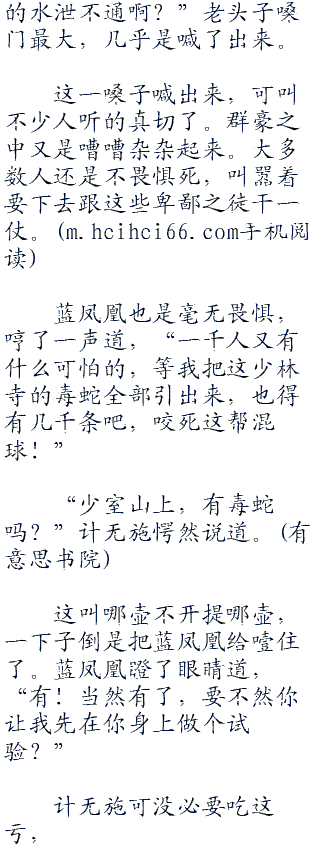 的水泄不通啊？”老头子嗓
门最大，几乎是喊了出来。
这一嗓子喊出来，可叫
不少人听的真切了。群豪之
中又是嘈嘈杂杂起来。大多
数人还是不畏惧死，叫嚣着
要下去跟这些卑鄙之徒干一
仗。(m.hcihci66.com手机阅
读)
蓝凤凰也是毫无畏惧，
哼了一声道，“一千人又有
什么可怕的，等我把这少林
寺的毒蛇全部引出来，也得
有几千条吧，咬死这帮混
球！”
“少室山上，有毒蛇
吗？”计无施愕然说道。(有
意思书院)
这叫哪壶不开提哪壶，
一下子倒是把蓝凤凰给噎住
了。蓝凤凰蹬了眼睛道，
“有！当然有了，要不然你
让我先在你身上做个试
验？”
计无施可没必要吃这
亏，